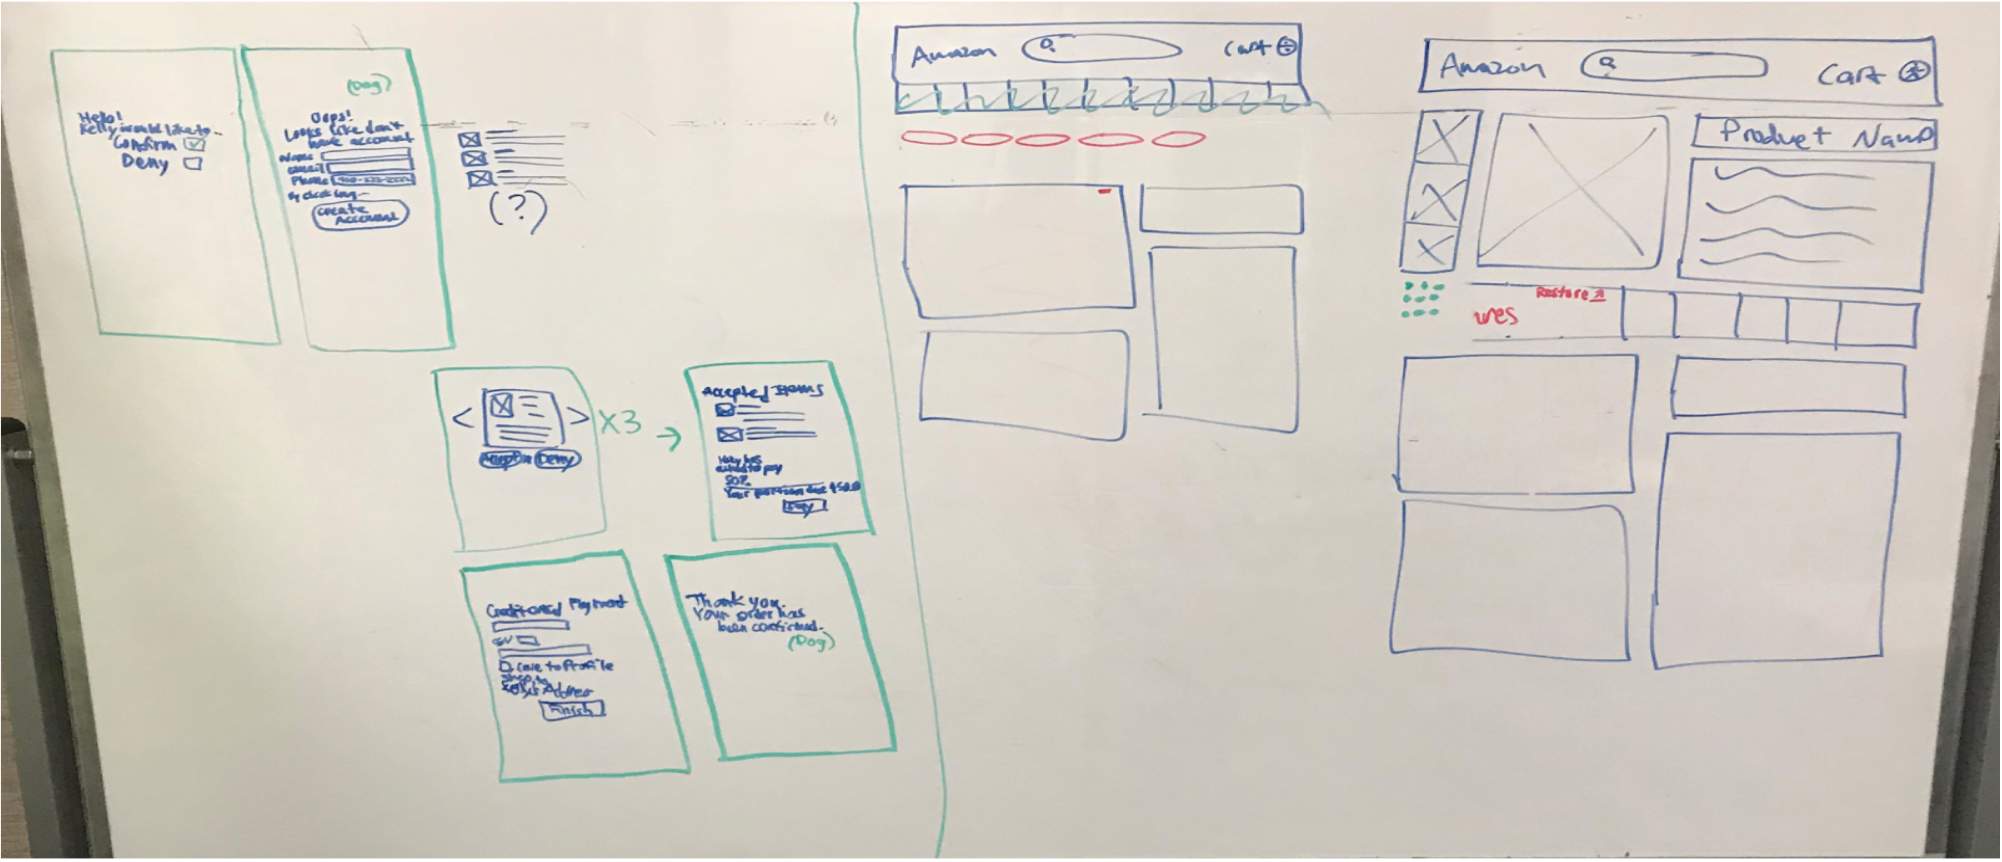 Hello!
Kelly would like to...
Confirm
Deny
(Dog)
Oops!
Looks like don't
have account
Name
email
Phone
By clicking
Create
Account
(?)
< > X3 →
Accept Deny
Accepted Items
asked to pay
50%
Your portion due
Pay
Credit card Payment
to Profile
Address
Finish
Thank you.
Your order has
been confirmed.
(Dog)
Amazon Cart
Amazon Cart
Product Name
Restore